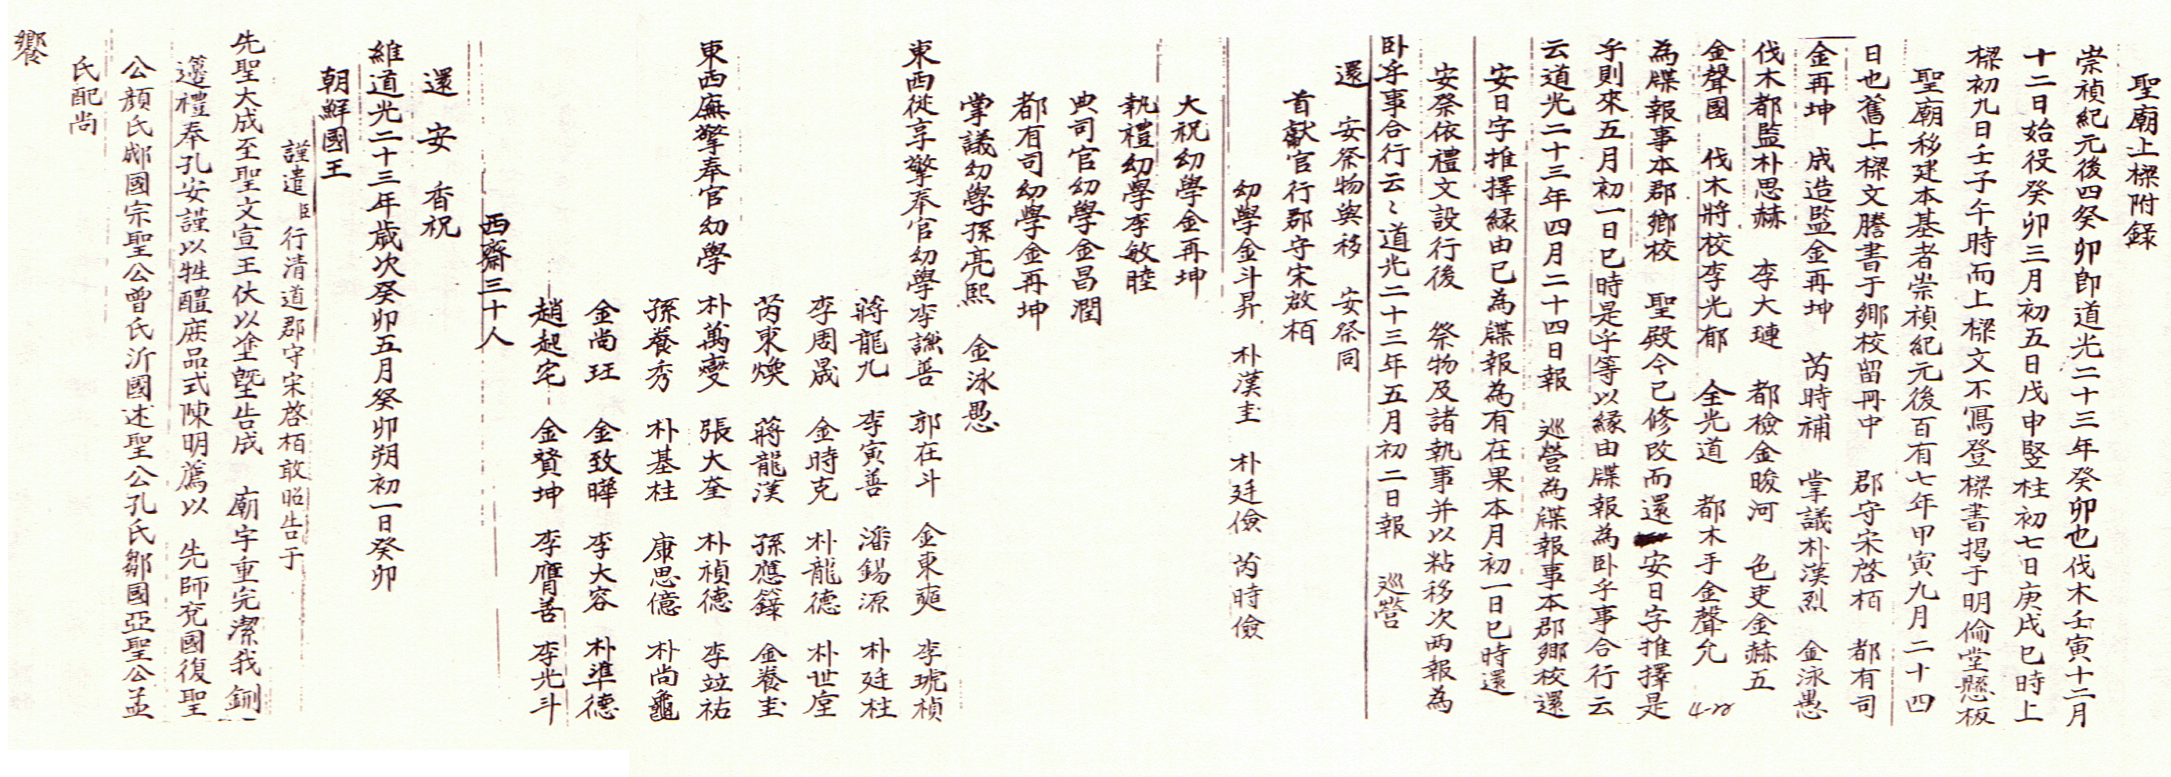 聖廟上樑附錄
崇禎紀元後四癸卯卽道光二十三年癸卯也伐木壬寅十二月
十二日始役癸卯三月初五日戊申竪柱初七日庚戌巳時上
樑初九日壬子午時而上樑文不寫登樑書揭于明倫堂懸板
聖廟移建本基者崇禎紀元後百有七年甲寅九月二十四
日也舊上樑文謄書于鄉校留冊中 郡守宋啓栢 都有司
金再坤 成造監金再坤 芮時補 掌議朴漢烈 金泳愚
伐木都監朴思赫 李大璉 都檢金晙河 色吏金赫五
金聲國 伐木將校李光郁 全光道 都木手金聲允
為牒報事本郡鄉校 聖殿今已修改而還安日字推擇是
乎則來五月初一日巳時是乎等以緣由牒報為卧乎事合行云
云道光二十三年四月二十四日報 巡營為牒報事本郡鄉校還
安日字推擇緣由已為牒報為有在果本月初一日巳時還
安祭依禮文設行後 祭物及諸執事并以粘移次兩報為
卧乎事合行云〻道光二十三年五月初二日報 巡營
還 安祭物與移 安祭同
首獻官行郡守宋啟栢
幼學金斗昇 朴漢圭 朴廷儉 芮時儉
大祝幼學金再坤
執禮幼學李敏睦
典司官幼學金昌潤
都有司幼學金再坤
掌議幼學孫亮熙 金泳愚
東西從享擎奉官幼學李讌善 郭在斗 金東奭 李琥楨
蔣龍九 李寅善 潘錫源 朴廷柱
李周晟 金時克 朴龍德 朴世堂
芮東煥 蔣龍漢 孫應籙 金養圭
東西廡擎奉官幼學 朴萬燮 張大奎 朴禎德 李竝祐
孫養秀 朴基柱 康思億 朴尚龜
金尚玨 金致曄 李大容 朴準德
趙起宅 金贇坤 李膺善 李光斗
西齋三十人
還 安 香祝
維道光二十三年歲次癸卯五月癸卯朔初一日癸卯
朝鮮國王
謹遣臣行清道郡守宋啓栢敢昭告于
先聖大成至聖文宣王伏以塗墍告成 廟宇重完潔我鉶
籩禮奉孔安謹以牲醴庶品式陳明薦以 先師兗國復聖
公顏氏郕國宗聖公曾氏沂國述聖公孔氏鄒國亞聖公孟
氏配尚
饗